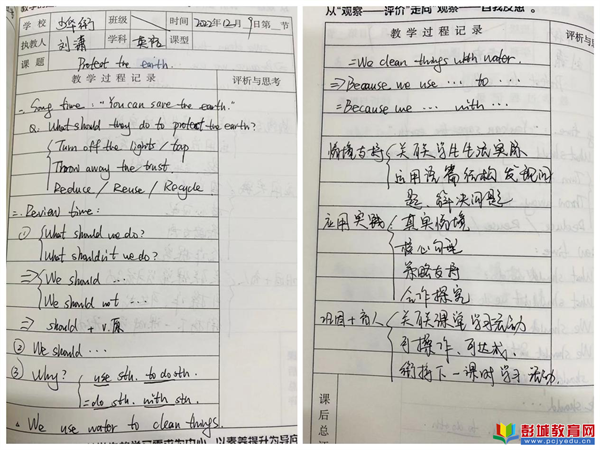 学校 班级 时间 2022年12月9日第 节
执教人 刘清 学科 英语 课型
课题 Protect the earth.
教学过程记录 评析与思考
一. Song time: "You can save the earth."
Q: What should they do to protect the earth?
Turn off the lights / tap
Throw away the trust
Reduce / Reuse / Recycle.
二. Review time:
① What should we do?
What shouldn't we do?
⇒ We should …
We should not …
⇒ should + v.原
② We should …
③ Why? use sth. to do sth.
= do sth. with sth.
We use water to clean things.
从“观察——评价”走向“观察——自我反思”。
教学过程记录 评析与思考
= We clean things with water.
⇒ Because we use … to …
= Because we … with …
情境支持 关联学生生活实际
运用语篇结构发现问
题、解决问题
应用实践 真实情境
核心句型
策略支持
合作探究
关联课堂学习活动
可操作、可达成、
衔接下一课时学习活动.
课后总
彭城教育网
www.pcjyedu.cn